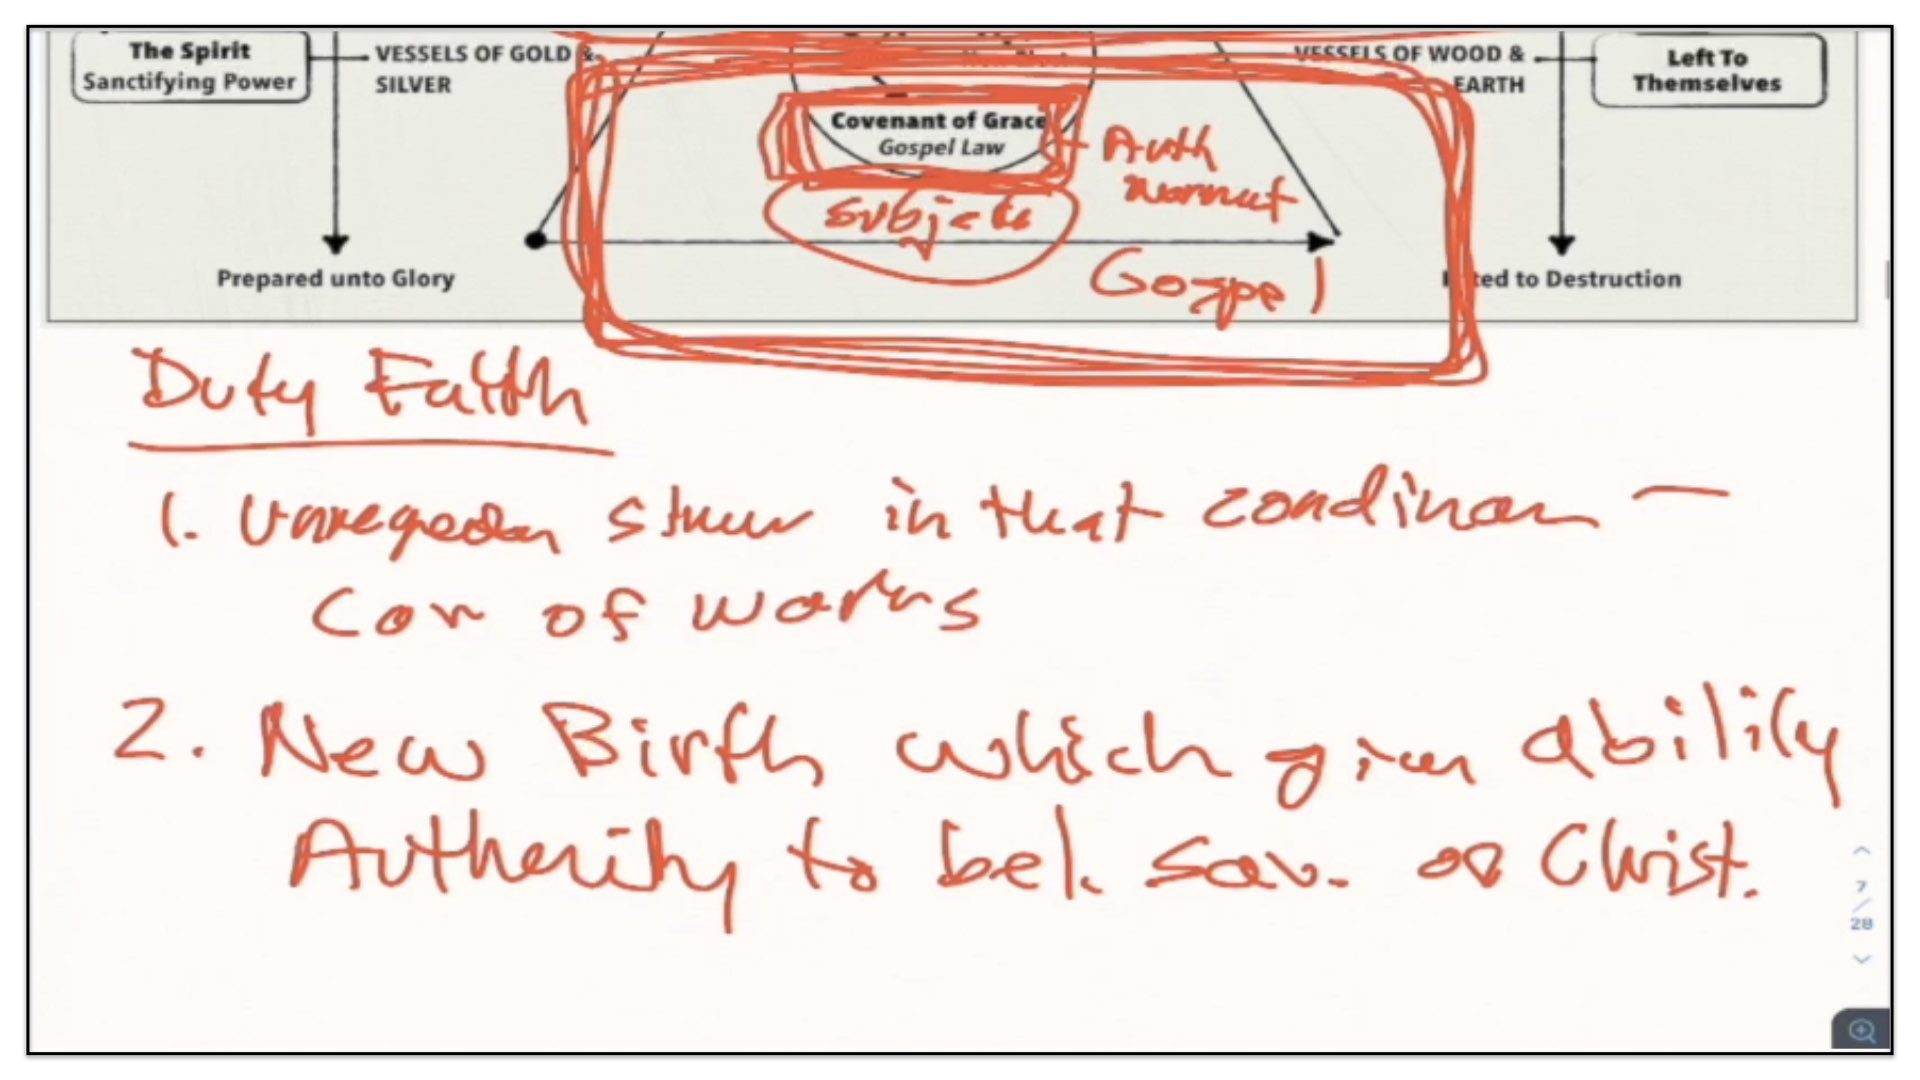 The Spirit
Sanctifying Power
VESSELS OF GOLD &
SILVER
VESSELS OF WOOD &
EARTH
Left To
Themselves
Covenant of Grace
Gospel Law
Auth
Subjects
Gospel
Prepared unto Glory
to Destruction
Duty Faith
1. in that
Cov of works
2. New Birth which given ability
Authority to bel. Sav. of Christ.
7
/
28